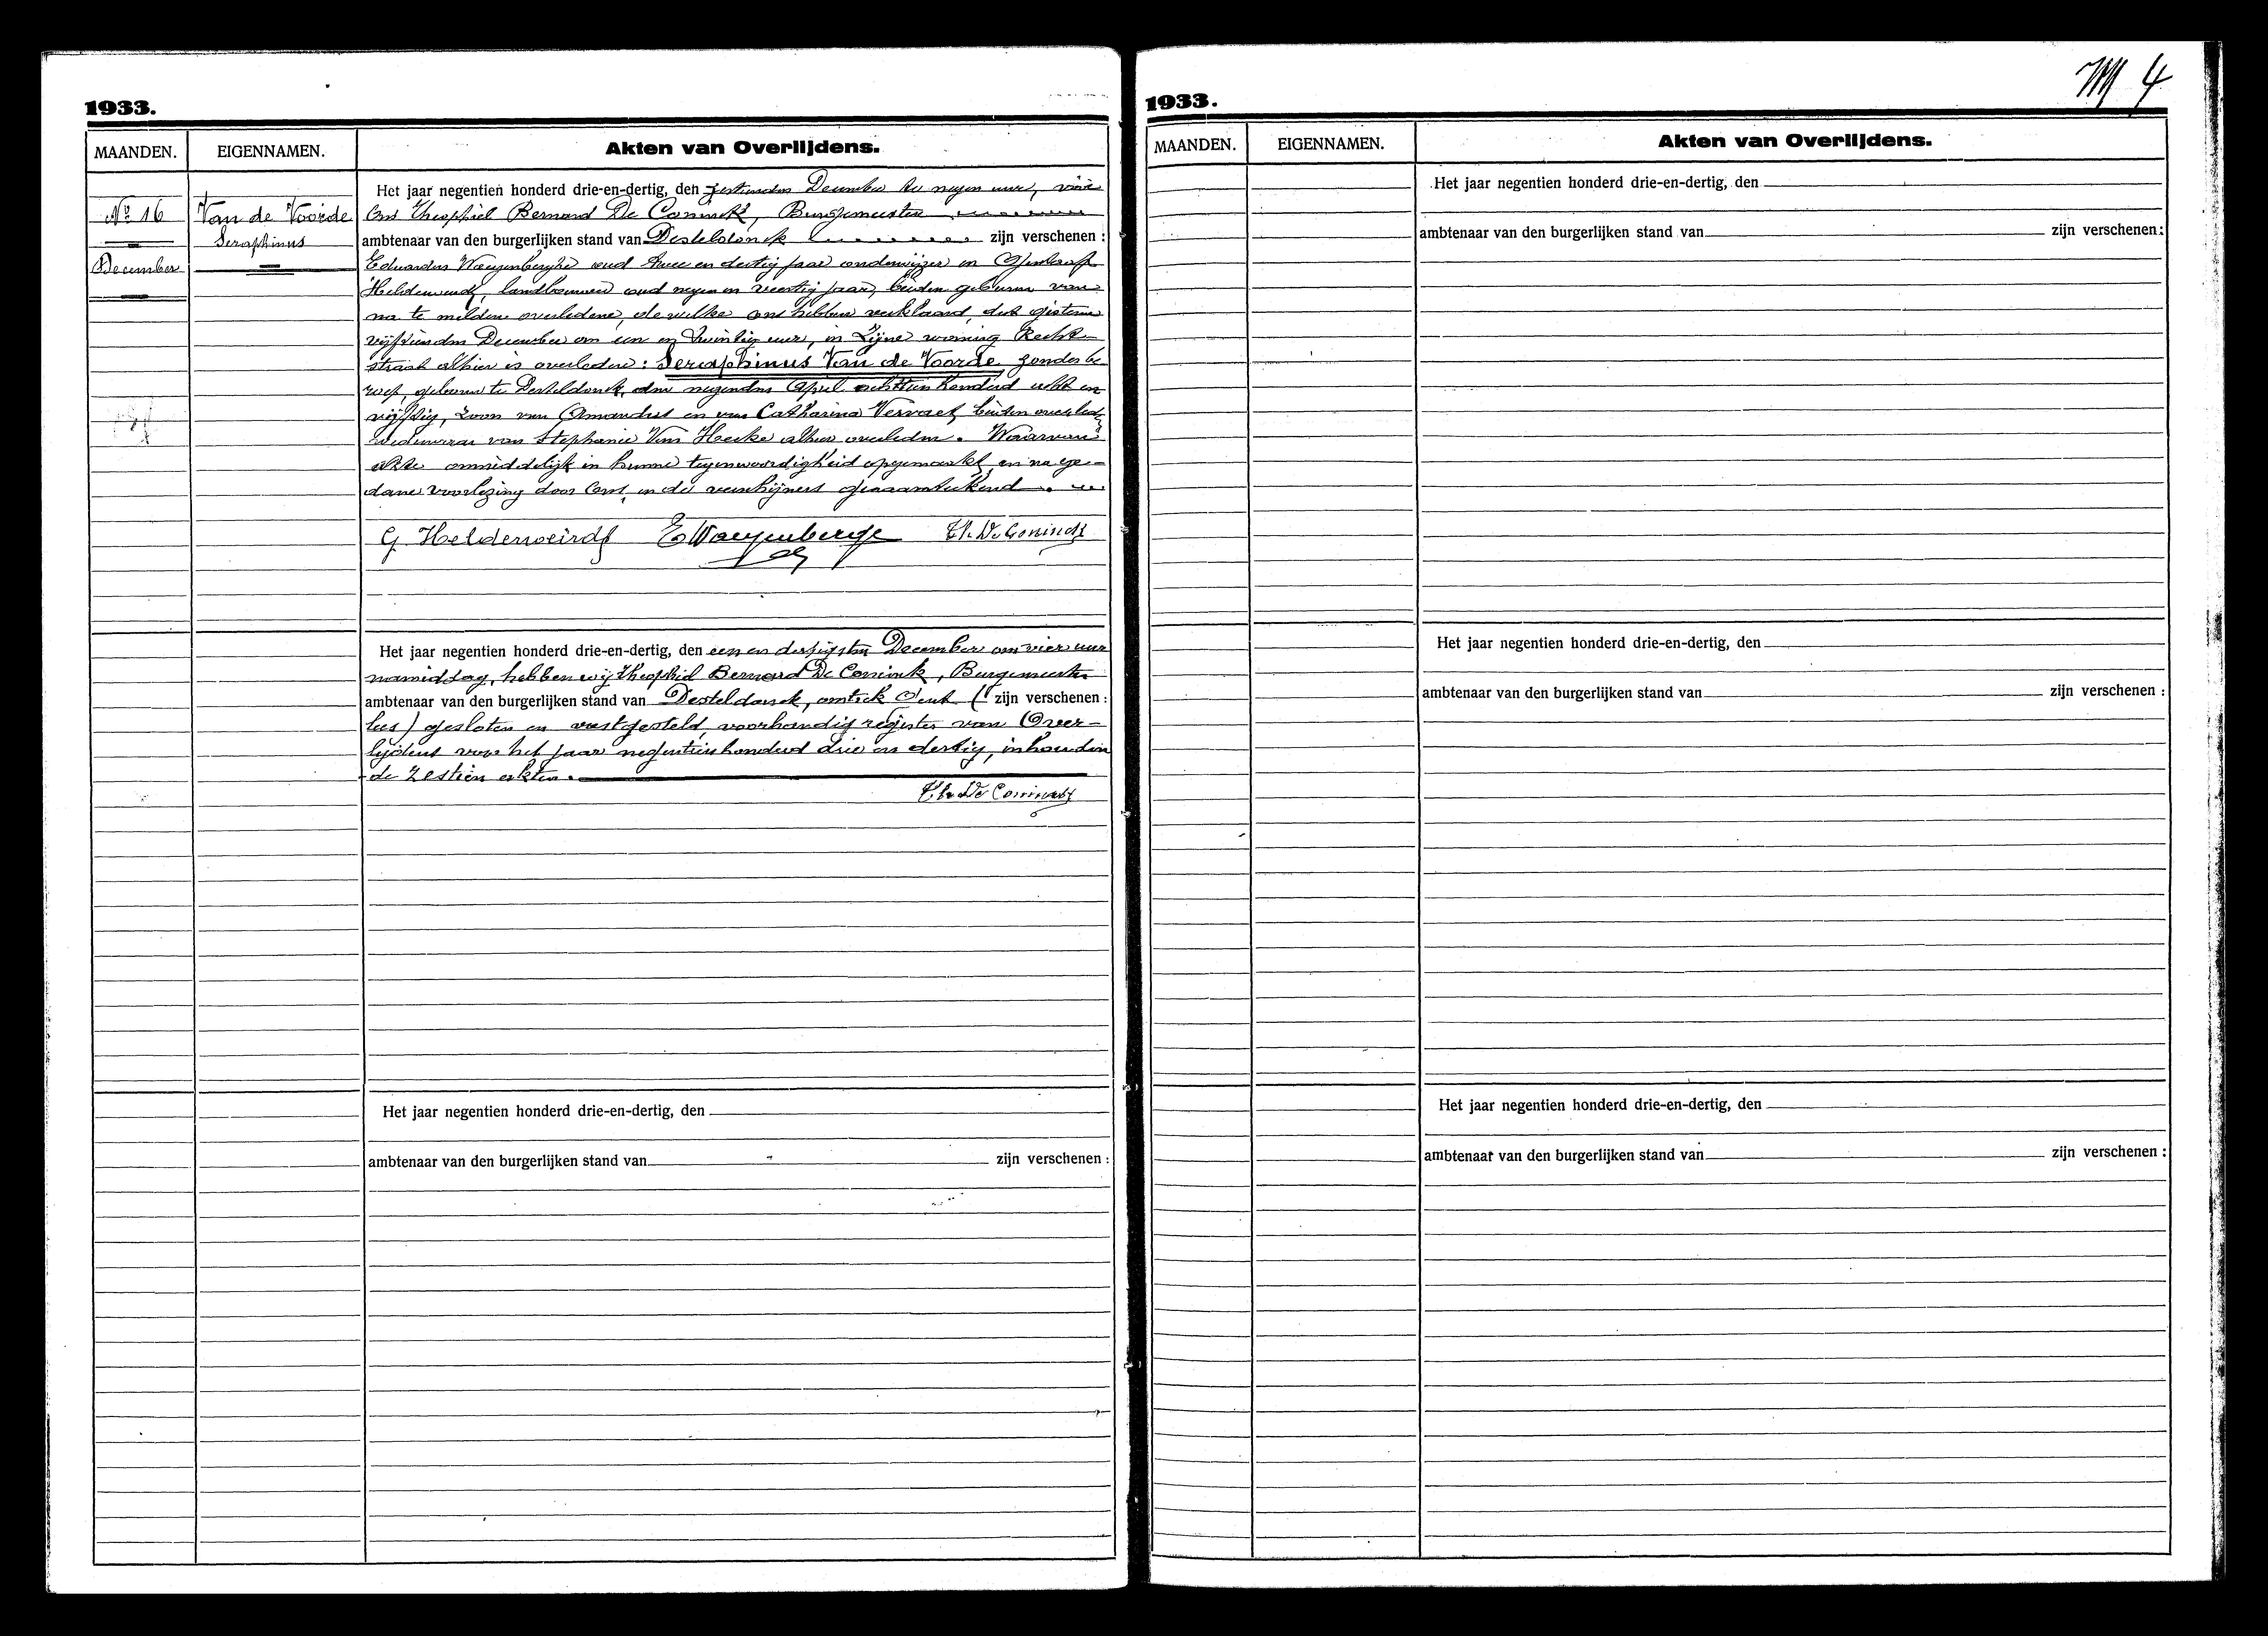 1933.
MAANDEN. EIGENNAMEN. Akten van Overlijdens.
Nº 16
December
Van de Voorde
Seraphinus
Het jaar negentien honderd drie-en-dertig, den zestienden December te negen uure, voor
Ons Theophiel Bernard De Coninck, Burgemeester
ambtenaar van den burgerlijken stand van Desteldonck zijn verschenen :
Eduardus Waeyenberghe oud twee en dertig jaar onderwijzer en
Heldenweirdt, landbouwer oud negen en veertig jaar, beiden geburen van
na te melden overledene, de welke ons hebben verklaard, dat gisteren
vijftienden December om een en twintig uur, in zijne woning Recht-
straat alhier is overleden : Seraphinus Van de Voorde zonder be
roep, geboren te Desteldonck, den negenden April achttien honderd acht en
vijftig, zoon van Amandus en van Catharina Vervaet, beiden overleden
weduwaar van Stephanie Van Hecke alhier overleden. Waarvan
akte onmiddelijk in hunne tegenwoordigheid opgemaakt, en na ge-
dane voorlezing door Ons en de verschijners genaamteekend.
G Heldenweirdt E Waeyenberge Th. De Coninck
Het jaar negentien honderd drie-en-dertig, den een en dertigsten December om vier uur
namiddag, hebben wij Theophiel Bernard De Coninck, Burgemeester
ambtenaar van den burgerlijken stand van Desteldonck, omtrek Gent ( zijn verschenen :
lees) gesloten en vastgesteld, voorhandig register van Over-
lijdens voor het jaar negentien honderd drie en dertig, inhouden
de zestien akten.
Th. De Coninck
Het jaar negentien honderd drie-en-dertig, den
ambtenaar van den burgerlijken stand van zijn verschenen :
1933.
4
MAANDEN. EIGENNAMEN. Akten van Overlijdens.
Het jaar negentien honderd drie-en-dertig, den
ambtenaar van den burgerlijken stand van zijn verschenen :
Het jaar negentien honderd drie-en-dertig, den
ambtenaar van den burgerlijken stand van zijn verschenen :
Het jaar negentien honderd drie-en-dertig, den
ambtenaar van den burgerlijken stand van zijn verschenen :